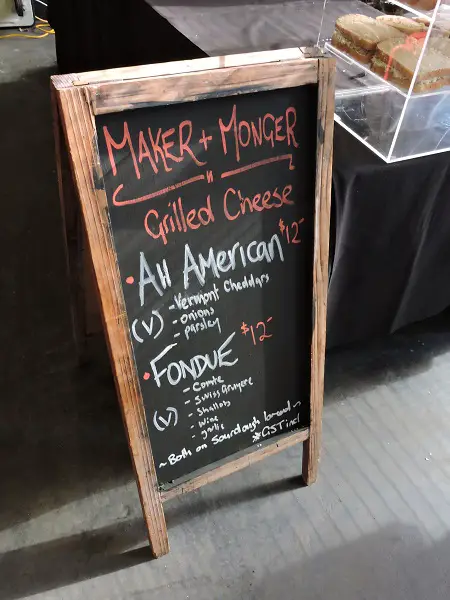 MAKER + MONGER
Grilled Cheese
• All American $12-
- Vermont Cheddars
- onions
(V) - parsley
• FONDUE $12-
- Comte
- Swiss Gruyere
(V) - Shallots
- wine
- garlic
~ Both on Sourdough bread ~
*GST incl